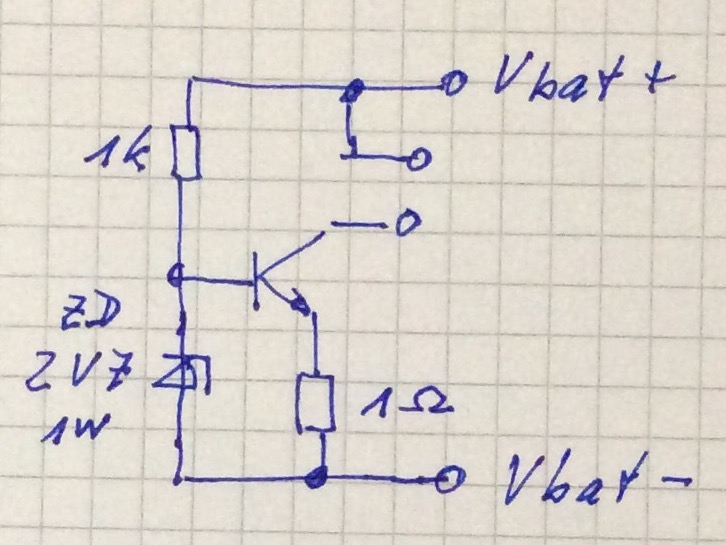 Vbat +
1k
ZD
2V7
1W
1Ω
Vbat -